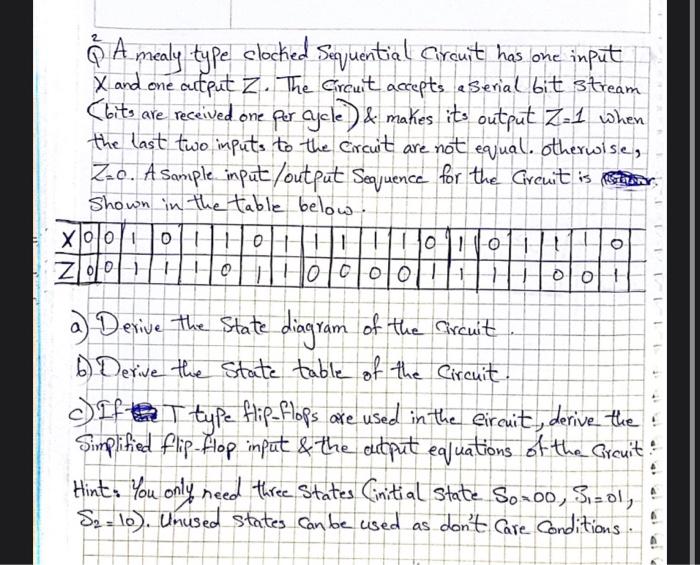 2
Q A mealy type clocked Sequential Circuit has one input
X and one output Z. The Circuit accepts a serial bit stream
(bits are received one per cycle) & makes its output Z=1 when
the last two inputs to the circuit are not equal. otherwise,
Z=0. A sample input/output Sequence for the Circuit is
Shown in the table below.
X 0 0 1 0 1 1 0 1 1 1 1 1 0 1 0 1 1 1 0
Z 0 0 1 1 1 0 1 1 0 0 0 0 1 1 1 1 0 0 1
a) Derive the State diagram of the Circuit.
b) Derive the State table of the Circuit.
c) If T type flip-flops are used in the circuit, derive the
Simplified flip-flop input & the output equations of the Circuit.
Hint: You only need three States (initial state S0=00, S1=01,
S2=10). Unused States can be used as don't Care Conditions.